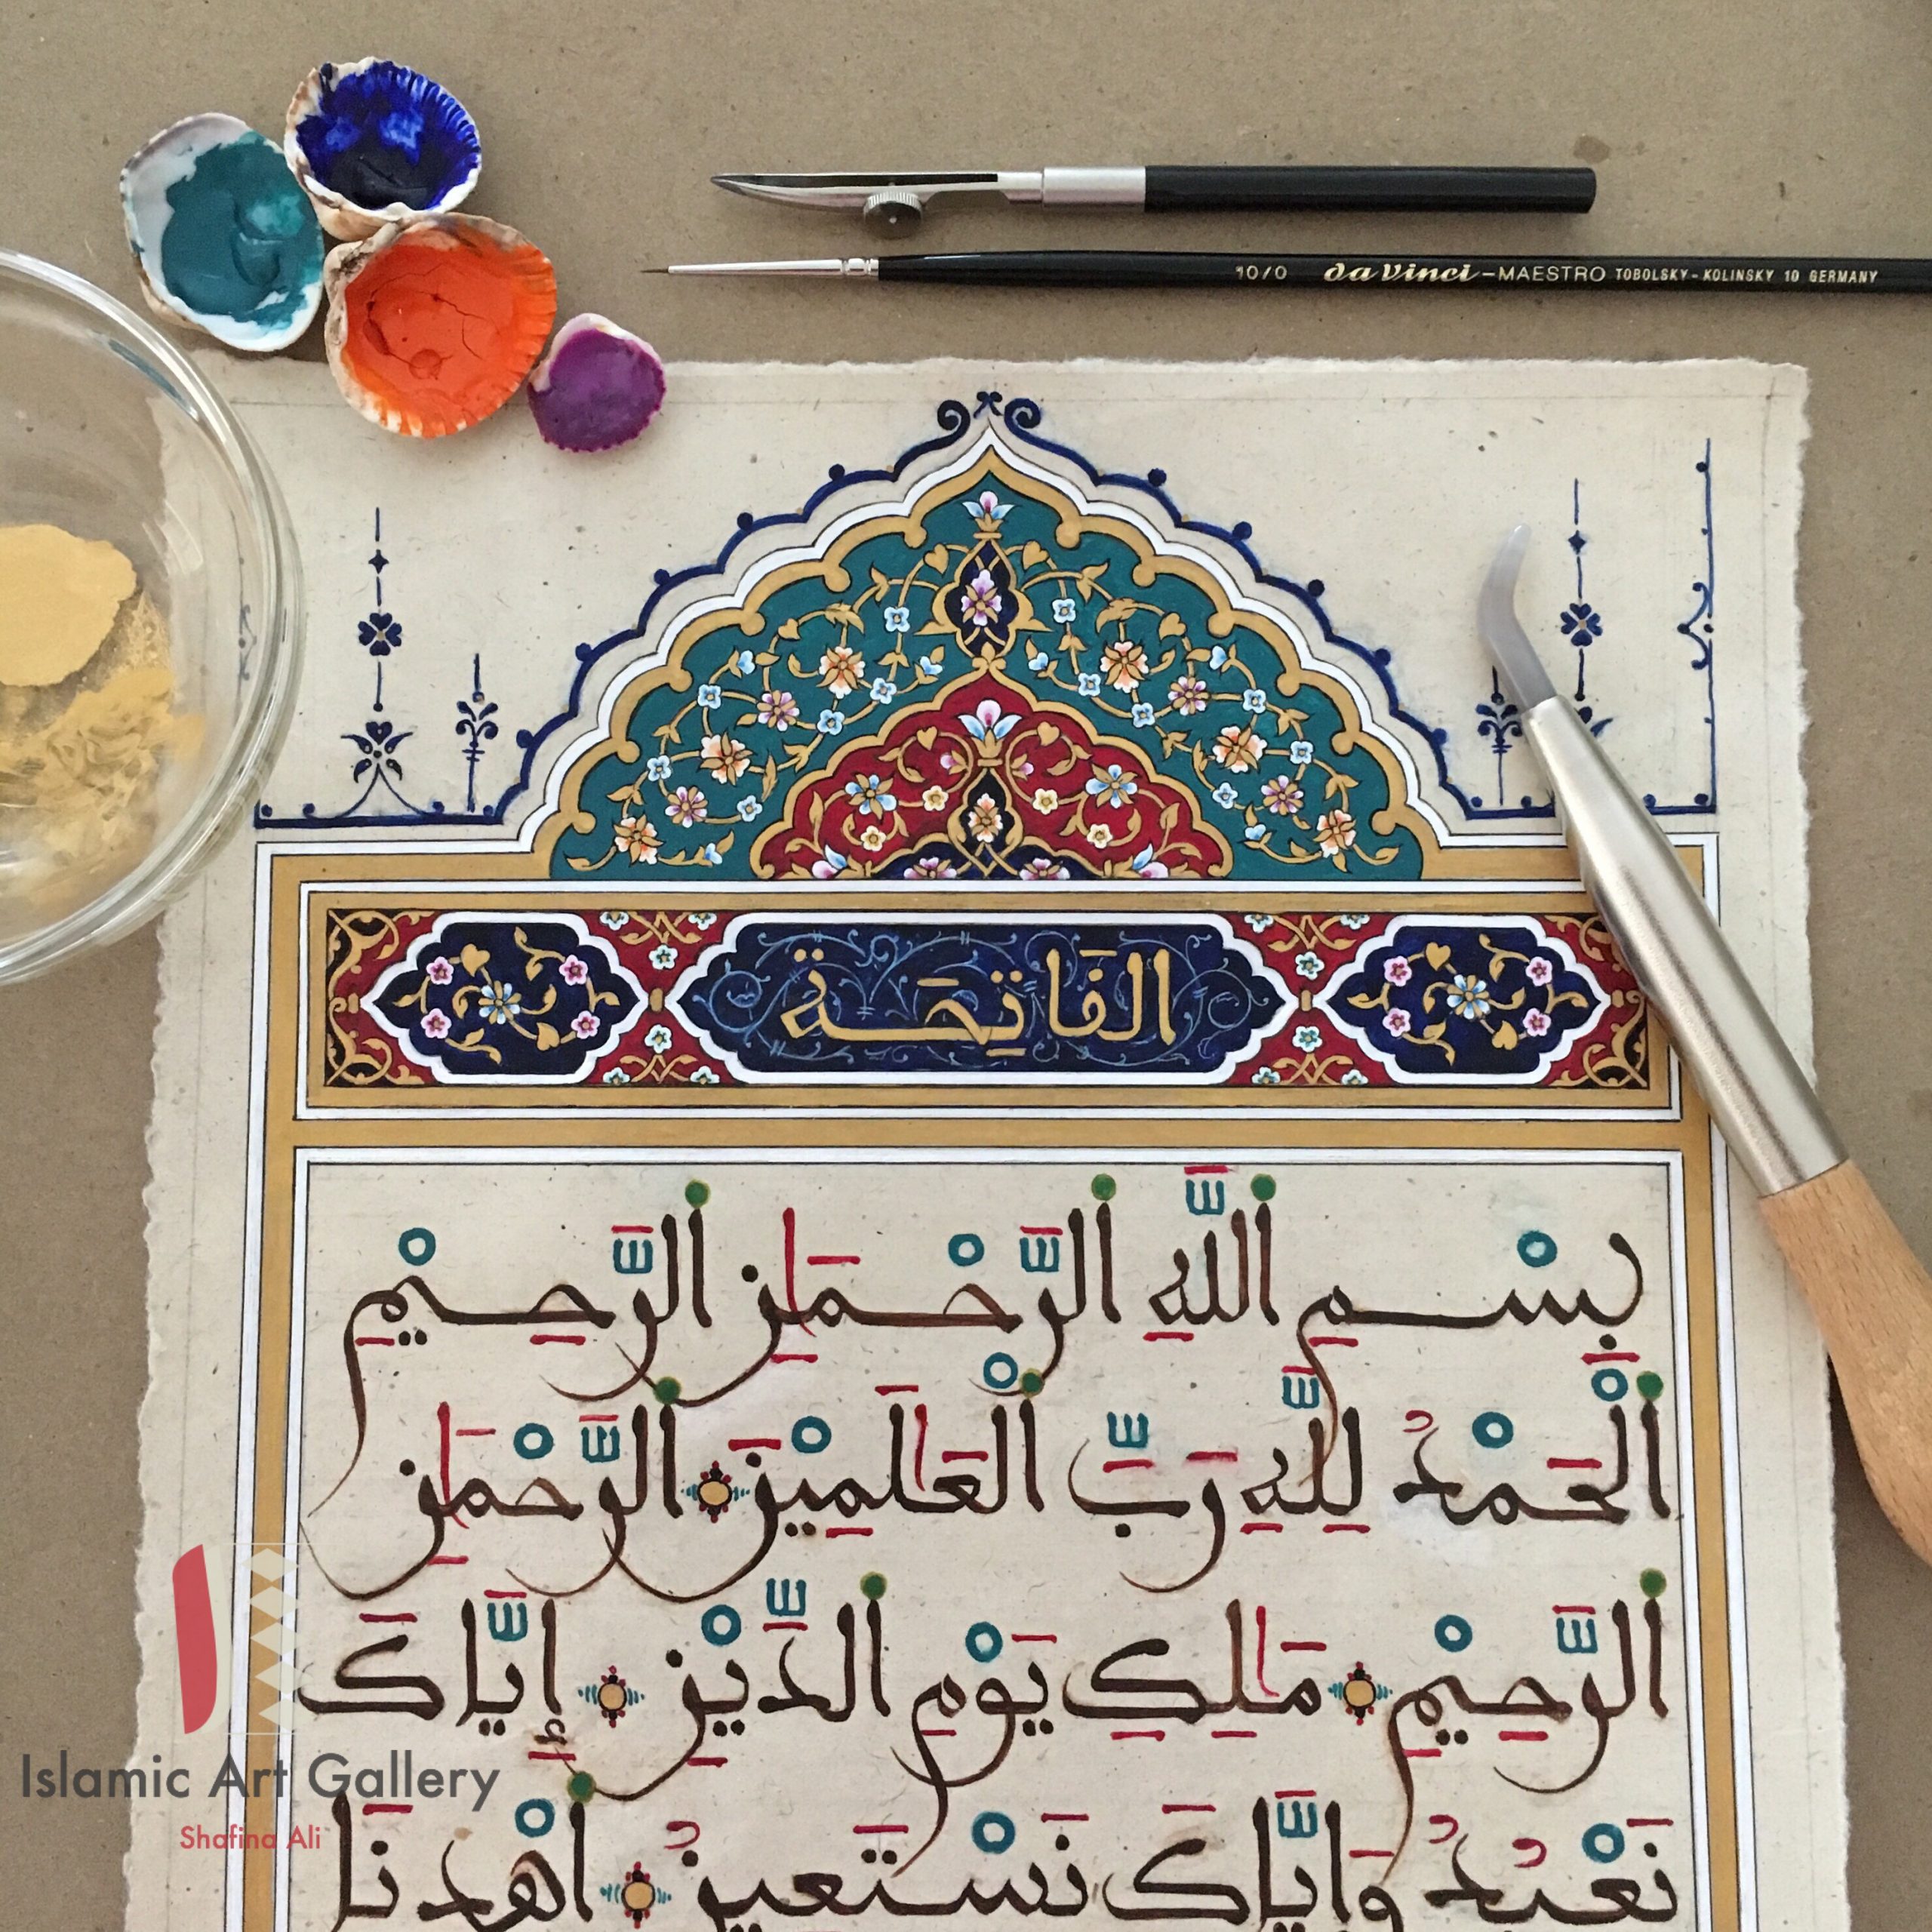 10/0 da Vinci - MAESTRO TOBOLSKY-KOLINSKY 10 GERMANY
الفَاتِحَة
بِسْمِ اللَّهِ الرَّحْمَٰنِ الرَّحِيْمِ
اَلْحَمْدُ لِلَّهِ رَبِّ الْعَٰلَمِيْنَ الرَّحْمَٰنِ
الرَّحِيْمِ مَٰلِكِ يَوْمِ الدِّيْنِ إِيَّاكَ
نَعْبُدُ وَإِيَّاكَ نَسْتَعِينُ اهْدِنَا
Islamic Art Gallery
Shafina Ali